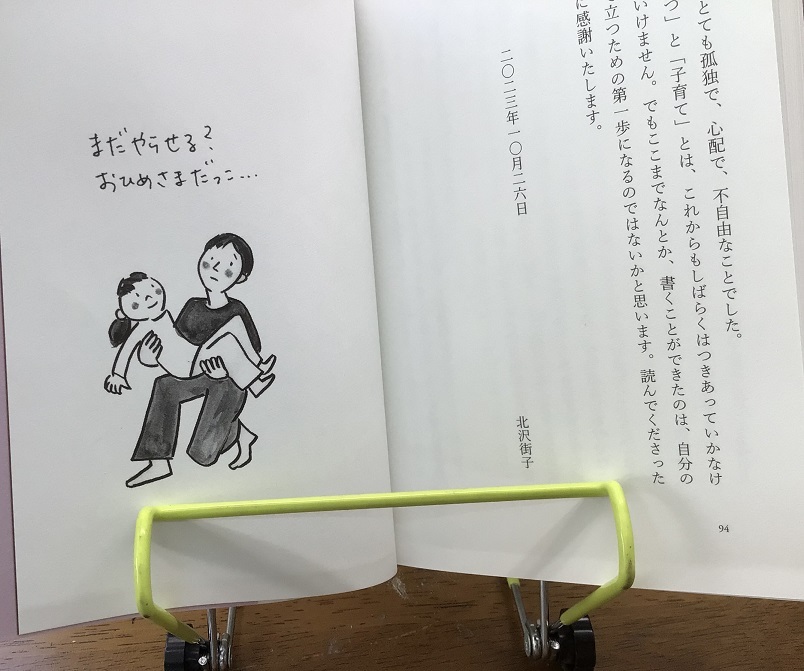 とても孤独で、心配で、不自由なことでした。
つ」と「子育て」とは、これからもしばらくはつきあっていかなけ
いけません。でもここまでなんとか、書くことができたのは、自分の
立つための第一歩になるのではないかと思います。読んでくださった
に感謝いたします。
二〇二三年一〇月二六日
北沢街子
94
まだやらせる?
おひめさまだっこ…